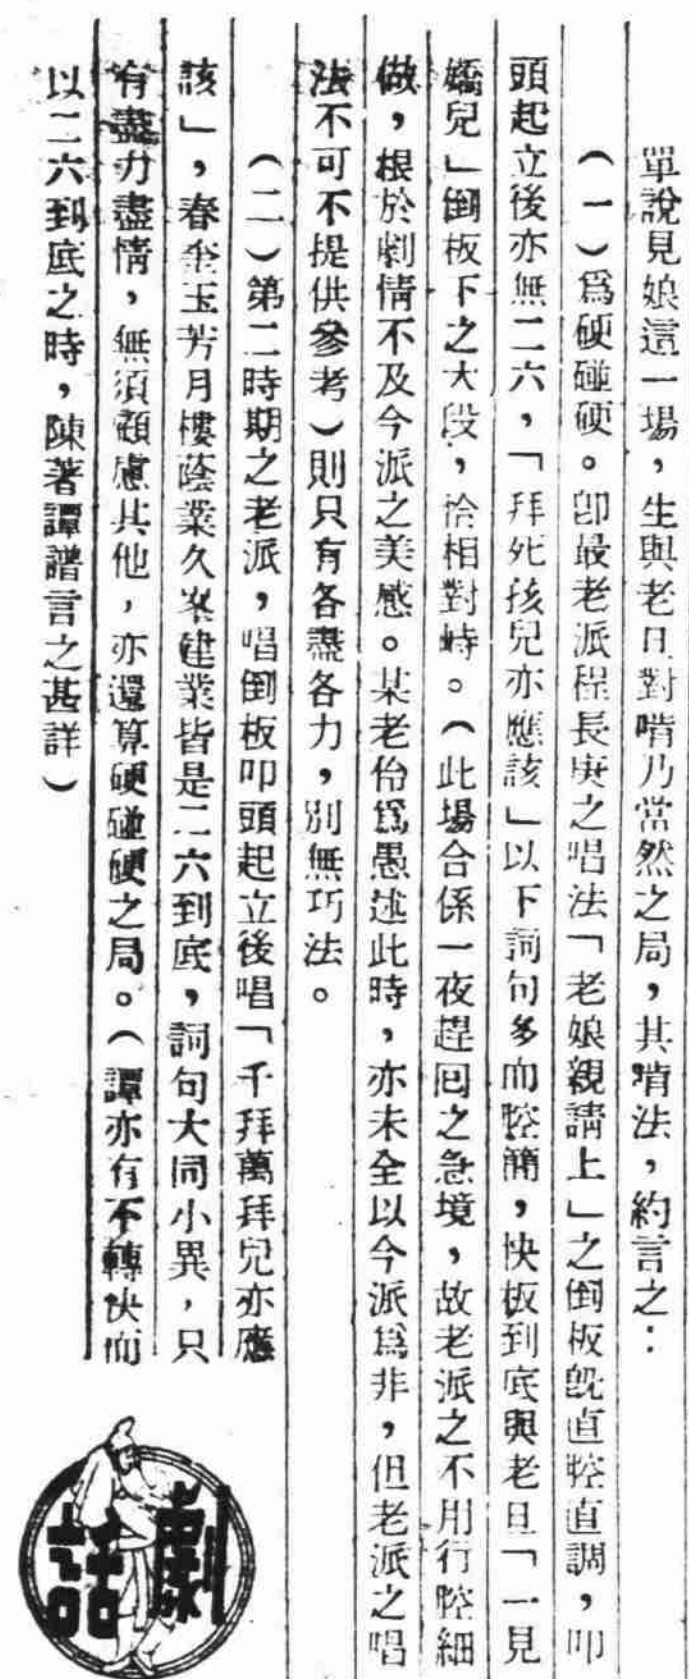 單說見娘這一場，生與老旦對啃乃當然之局，其啃法，約言之：
（一）爲硬碰硬。卽最老派程長庚之唱法「老娘親請上」之倒板旣直腔直調，叩
頭起立後亦無二六，「拜死孩兒亦應該」以下詞句多而腔簡，快板到底與老旦「一見
嬌兒」倒板下之大段，恰相對峙。（此場合係一夜趕回之急境，故老派之不用行腔細
做，根於劇情不及今派之美感。某老伶爲愚述此時，亦未全以今派爲非，但老派之唱
法不可不提供參考）則只有各盡各力，別無巧法。
（二）第二時期之老派，唱倒板叩頭起立後唱「千拜萬拜兒亦應
該」，春奎玉芳月樓蔭棠久峯建業皆是二六到底，詞句大同小異，只
有盡力盡情，無須顧慮其他，亦還算硬碰硬之局。（譚亦有不轉快而
以二六到底之時，陳著譚譜言之甚詳）
劇話